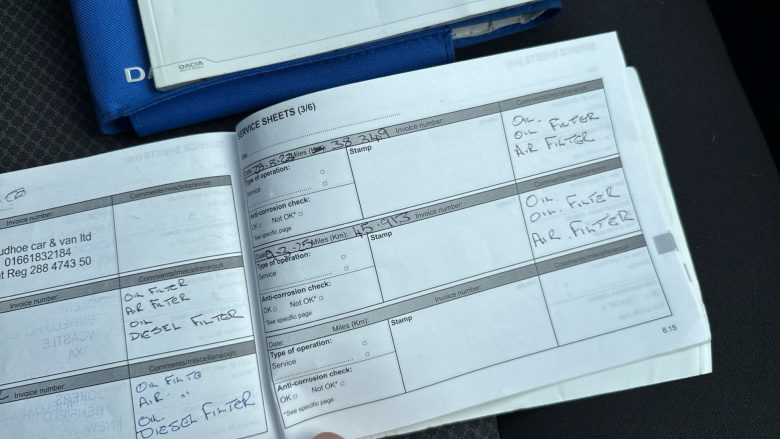 DACIA
Invoice number:
Comments/miscellaneous
udhoe car & van ltd
01661832184
t Reg 288 4743 50
Invoice number:
Comments/miscellaneous
OIL FILTER
AIR FILTER
OIL
DIESEL FILTER
Invoice number:
Comments/miscellaneous
AIR "
OIL
DIESEL FILTER
SERVICE SHEETS (3/6)
Date:
Miles
38349
Invoice number:
Comments/miscellaneous
Type of operation:
Service
Stamp
OIL.
OIL FILTER
AIR FILTER
Anti-corrosion check:
OK Not OK*
*See specific page
Date:
Miles (Km):
45.953
Invoice number:
Comments/miscellaneous
Type of operation:
Service
Stamp
OIL.
OIL. FILTER
AIR. FILTER
Anti-corrosion check:
OK Not OK*
*See specific page
Date:
Miles (Km):
Invoice number:
Comments/miscellaneous
Type of operation:
Service
Stamp
Anti-corrosion check:
OK Not OK*
*See specific page
6.15